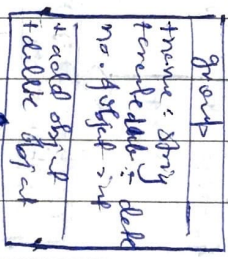 group
+name : string
+created at : date
no. of object : int
+add object
+delete object